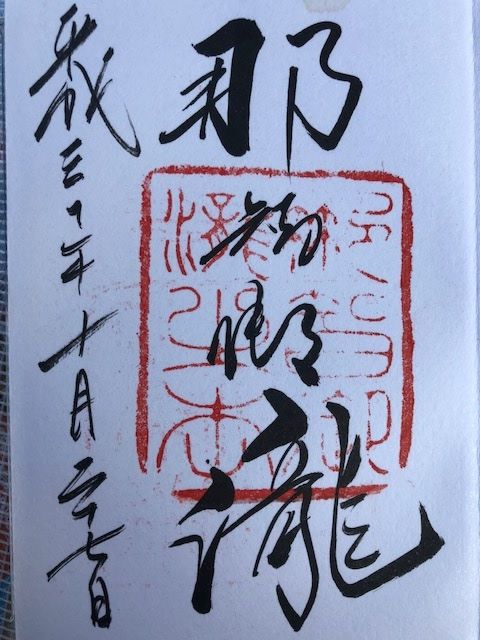 那智御瀧
平成三十年十月二十七日